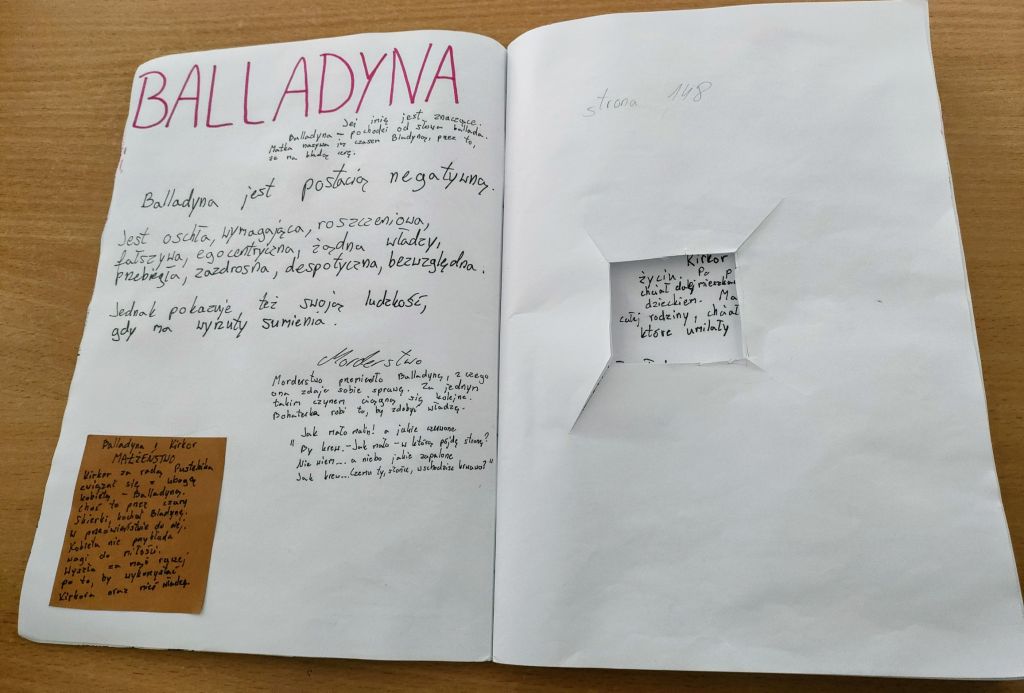 BALLADYNA
Jej imię jest znaczące.
Balladyna - pochodzi od słowa ballada.
Matka nazywa ją czasem Bladyną, przez to,
że ma bladą cerę.
Balladyna jest postacią negatywną.
Jest oschła, wymagająca, roszczeniowa,
fałszywa, egocentryczna, żądna władzy,
przebiegła, zazdrosna, despotyczna, bezwzględna.
Jednak pokazuje też swoją ludzkość,
gdy ma wyrzuty sumienia.
Morderstwo
Morderstwo przemieniło Balladynę, z czego
ona zdaje sobie sprawę. Za jednym
takim czynem ciągną się kolejne.
Bohaterka robi to, by zdobyć władzę.
Jak mało malin! a jakie czerwone
" By krew. - Jak mało - w którą pójdę stronę?
Nie wiem... a niebo jakie zapalone
Jak krew... Czemu ty, słońce, wschodzisz krwawo? "
Balladyna i Kirkor
MAŁŻEŃSTWO
Kirkor za radą Pustelnika
związał się z ubogą
kobietą - Balladyną.
choć to przez czary
Skierki, kochał Bladynę.
w przeciwieństwie do niej.
Kobieta nie przykłada
wagi do miłości.
Wyszła za mąż raczej
po to, by wykorzystać
Kirkora oraz mieć władzę.
strona 148
Kirkor
życiu. Po p
chciał dalej mieszka
dzieckiem. Ma
całej rodziny, chciał
które umilały